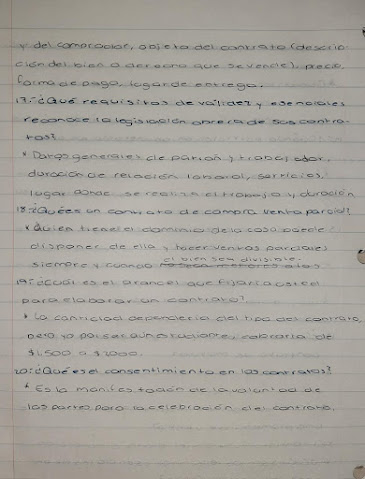 y del comprador, objeto del contrato (descrip-
ción del bien o derecho que se vende), precio,
forma de pago, lugar de entrega.
17.-¿Qué requisitos de validez y esenciales
reconoce la legislación obrera de sus contra-
tos?
* Datos generales de patrón y trabajador,
duración de relación laboral, servicios,
lugar donde se realiza el trabajo y duración
18.-¿Qué es un contrato de compra venta parcial?
* Quien tiene el dominio de la cosa puede
disponer de ella y hacer ventas parciales
siempre y cuando el bien sea divisible.
19.-¿Cuál es el arancel que fijaría usted
para elaborar un contrato?
* La cantidad dependería del tipo del contrato,
pero yo por ser aún estudiante, cobraría de
$1,500 a $2000.
20.-¿Qué es el consentimiento en los contratos?
* Es la manifestación de la voluntad de
las partes para la celebración del contrato.